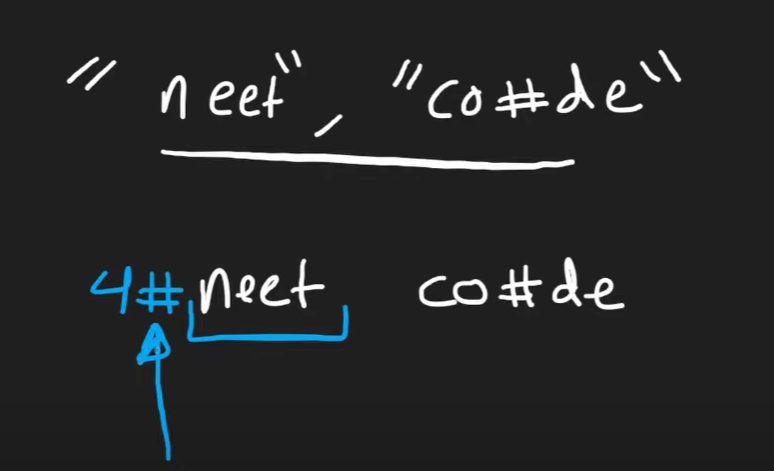 "neet", "co#de"
4#neet co#de